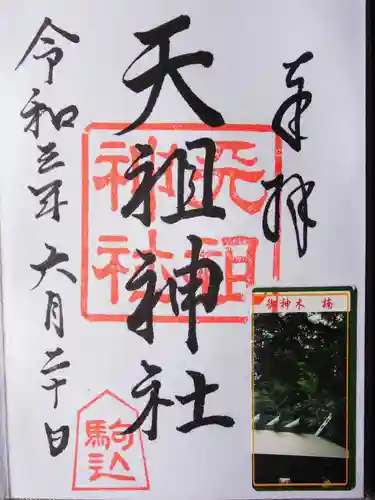 奉拝
天祖神社
天祖
神社
令和三年 六月二十日
駒込
御神木 楠